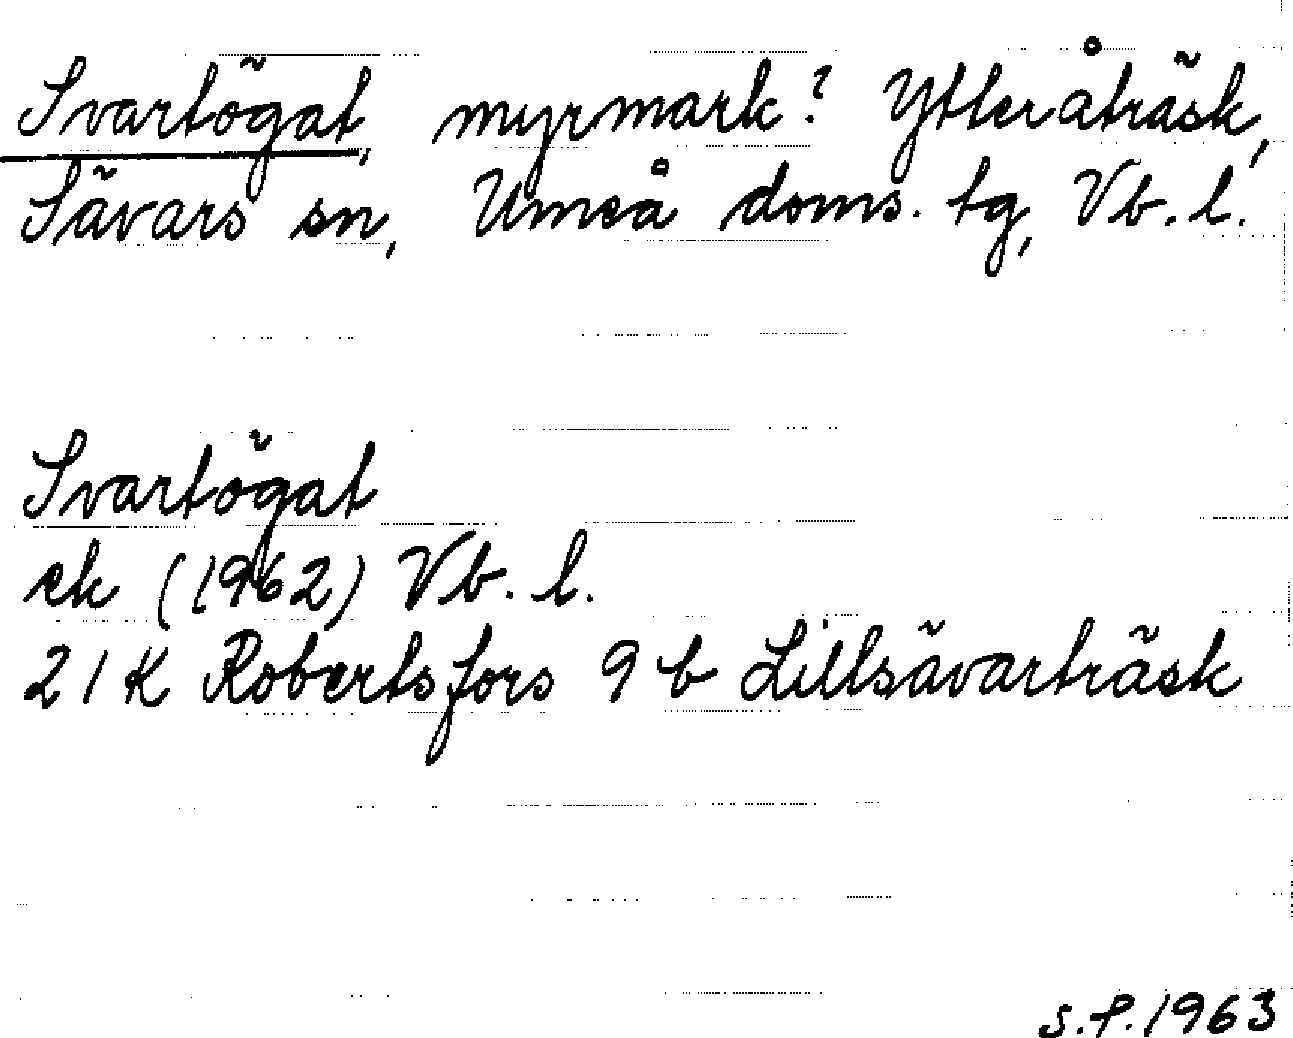 Svartögat, myrmark? Ytteråträsk,
Sävars sn, Umeå doms. tg, Vb. l.
Svartögat
ek (1962) Vb. l.
21K Robertsfors 9 b Lillsävarträsk
S.P. 1963